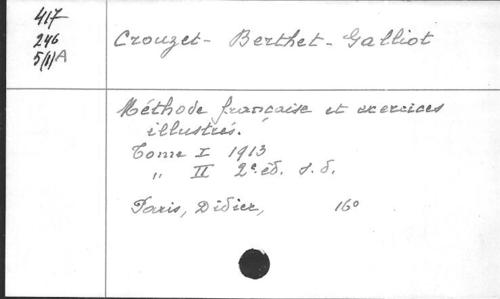 417
246
5(1)A
Crouzet - Berthet - Galliot
Méthode française et exercices
illustrés.
Tome I 1913
" II 2e éd. s.d.
Paris, Didier, 16o